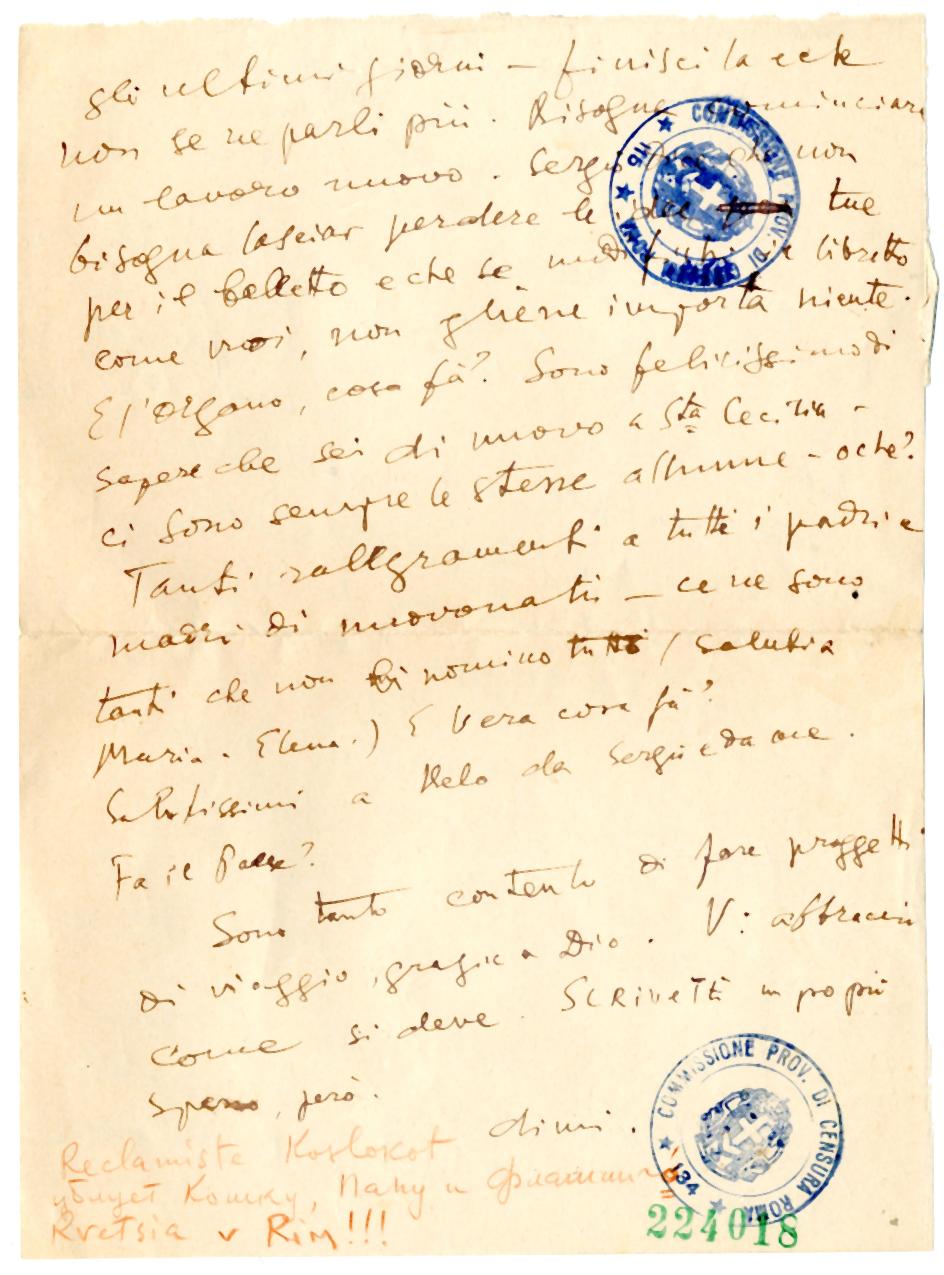 gli ultimi giorni – finiscila e che
non se ne parli più. Bisogna cominciare
un lavoro nuovo. Sergio dice che non
bisogna lasciar perdere le idee tue
per il balletto e che se modifichi il libretto
come vuoi, non gliene importa niente.
E l'organo, cosa fà? Sono felicissimo di
sapere che sei di nuovo a Sta Cecilia –
ci sono sempre le stesse allunne – oche?
Tanti rallegramenti a tutti i padri e
madri di nuovonati – ce ne sono
tanti che non li nomino tutti (saluti a
Maria. Elena.) E Vera cosa fà?
Salutissimi a Melo da Sergio e da me.
Fa il
Sono tanto contento di fare proggetti
di viaggio, grazie a Dio. Vi abbraccio
come si deve. Scrivetti un po più
spesso, però.
dimi.
Reclamista Koslokot
Кошку, Папу и
Rvetsia v Rim!!!
COMMISSIONE PROV. DI CENSURA ROMA 116
COMMISSIONE PROV. DI CENSURA ROMA 134
224018